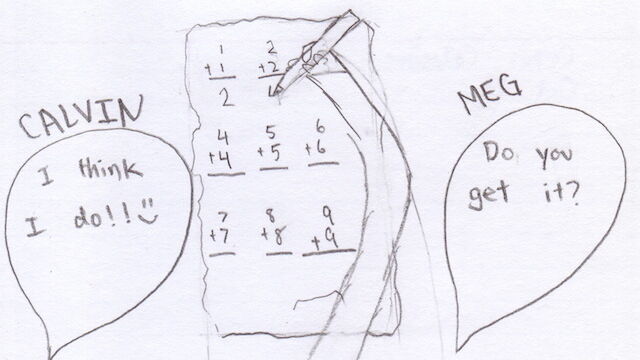 CALVIN
I think
I do!!
MEG
Do you
get it?
1 2
+1 +2
2 4
4 5 6
+4 +5 +6
7 8 9
+7 +8 +9